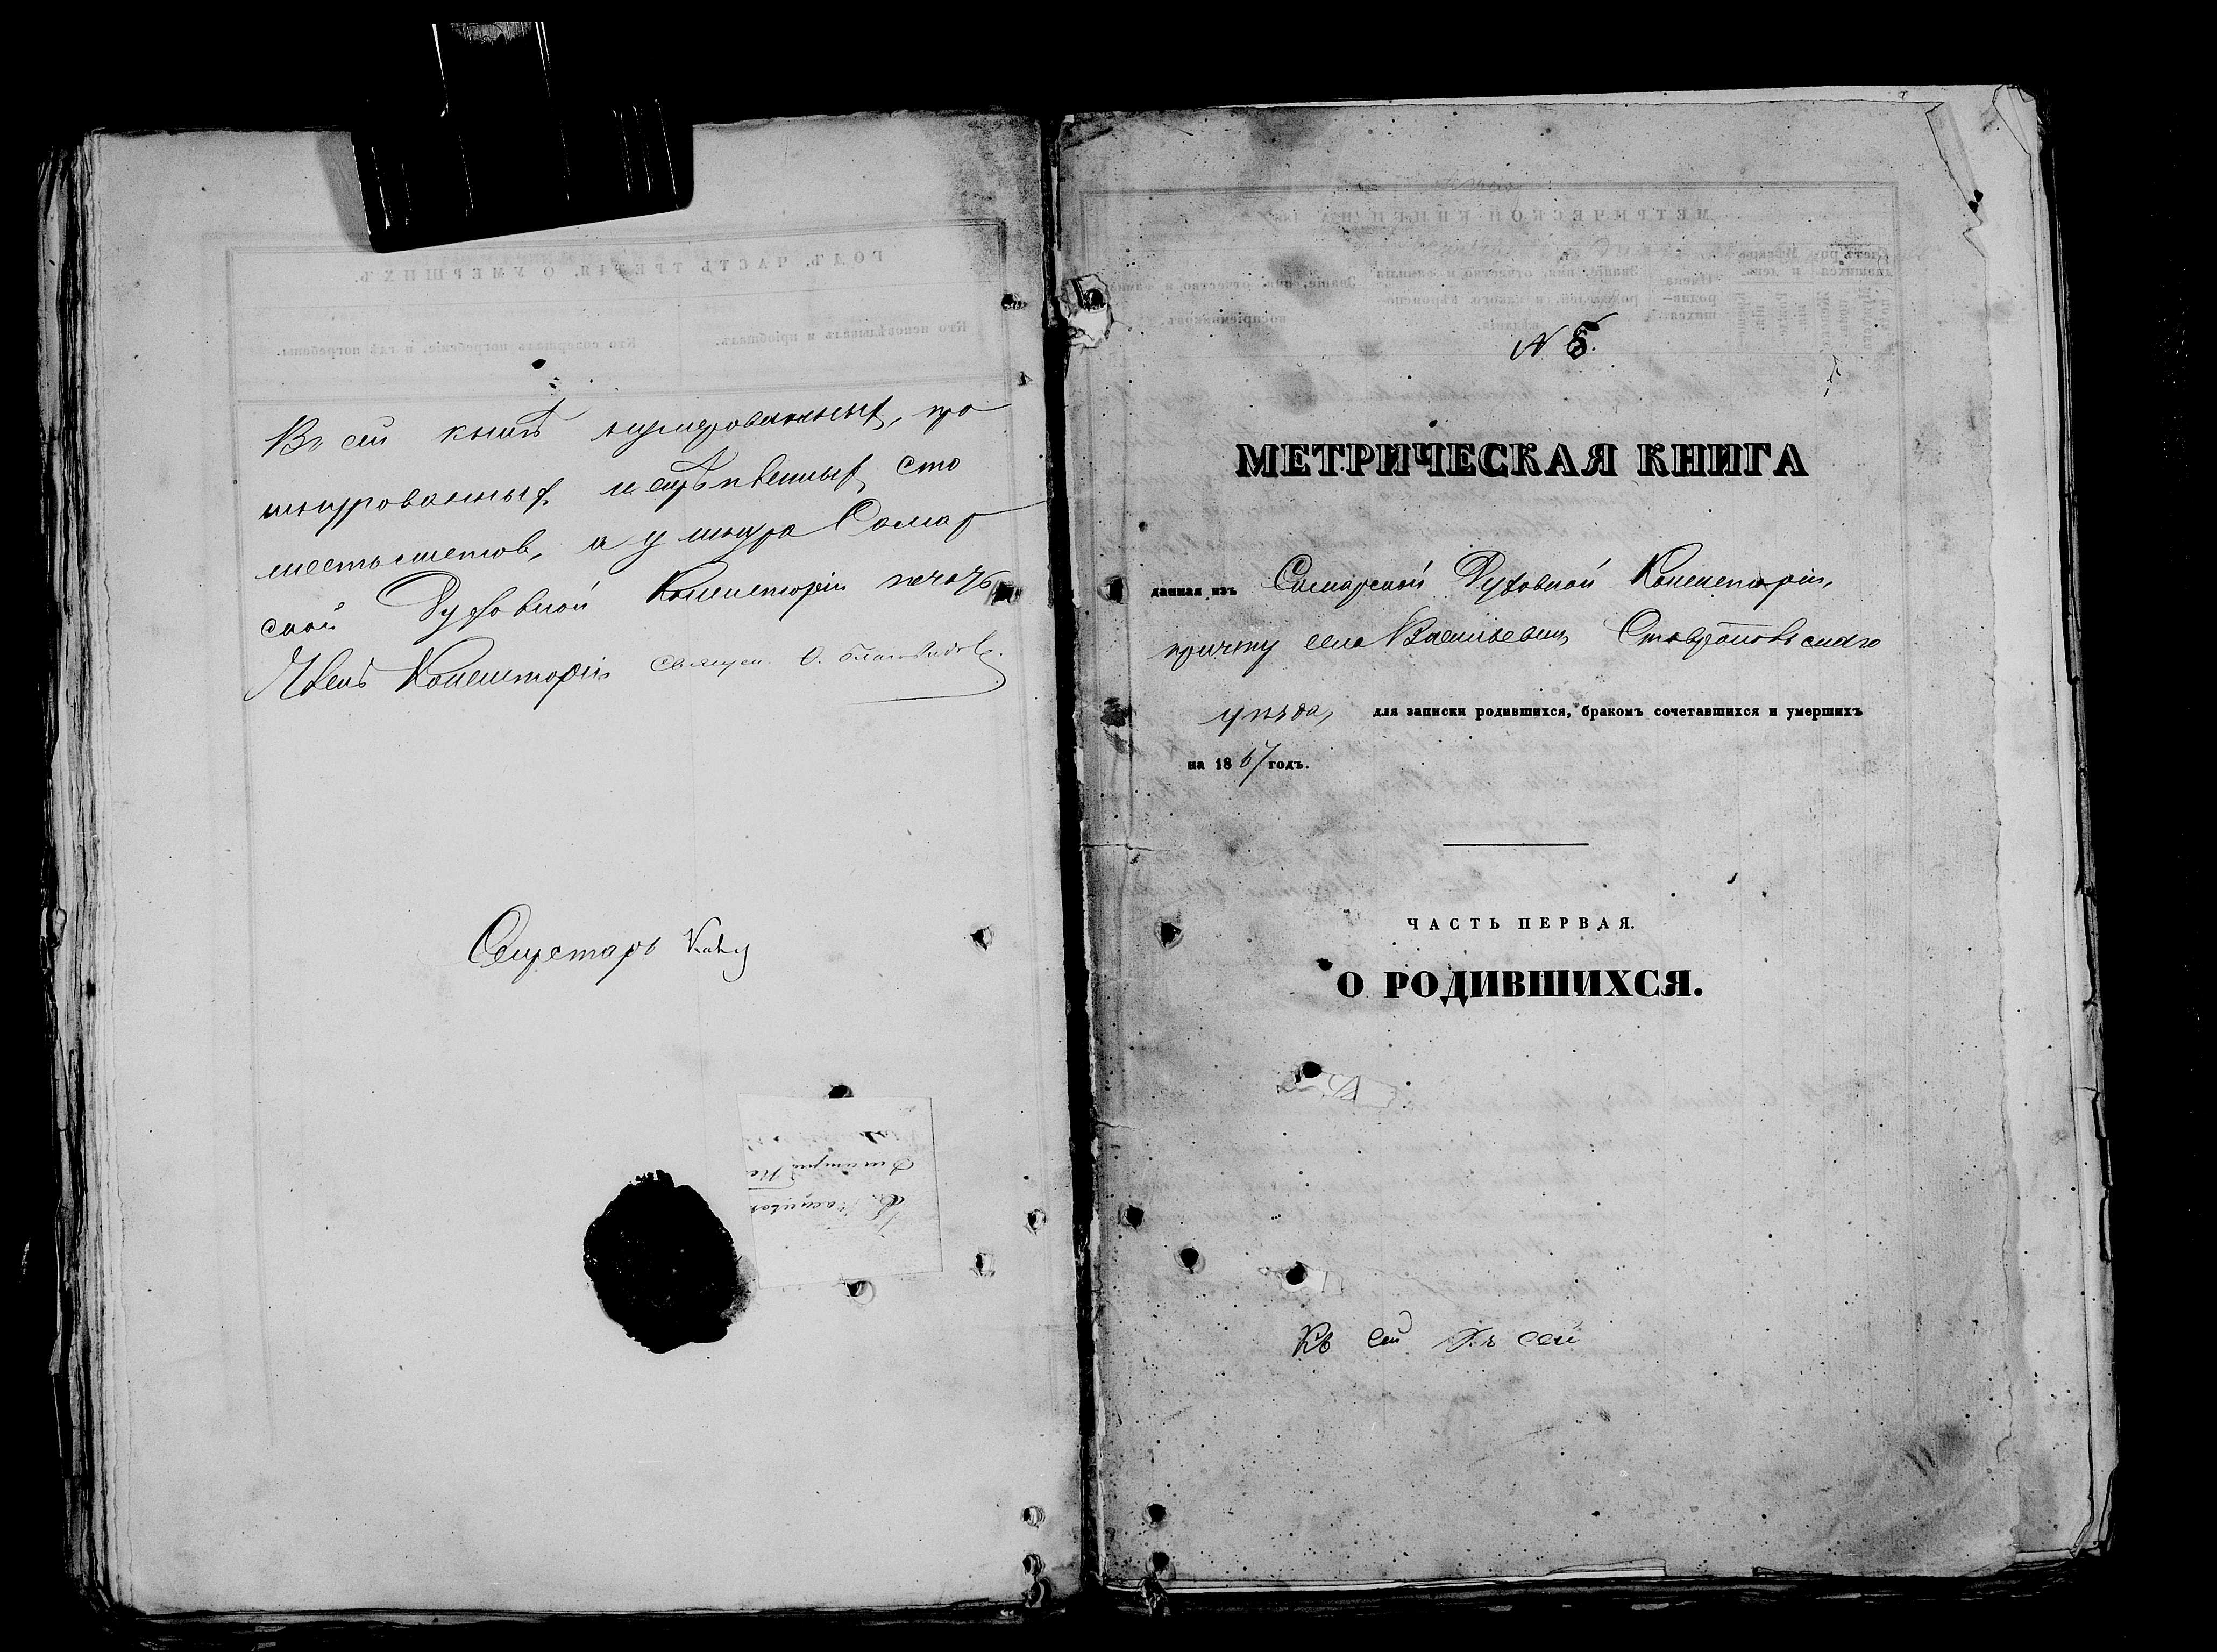 Въ сей книгѣ нумерованныхъ, про
шнурованныхъ и скрѣпленныхъ сто
шесть листовъ, а у шнура Самар
ской Духовной Консисторіи печать
Членъ Консисторіи Священ.
Секретарь
N 5.
МЕТРИЧЕСКАЯ КНИГА
данная изъ Самарской Духовной Консисторіи,
причту села Васильевки, Ставропольскаго
уѣзда, для записки родившихся, бракомъ сочетавшихся и умершихъ
на 1867 годъ.
ЧАСТЬ ПЕРВАЯ.
О РОДИВШИХСЯ.
Къ сей Къ сей